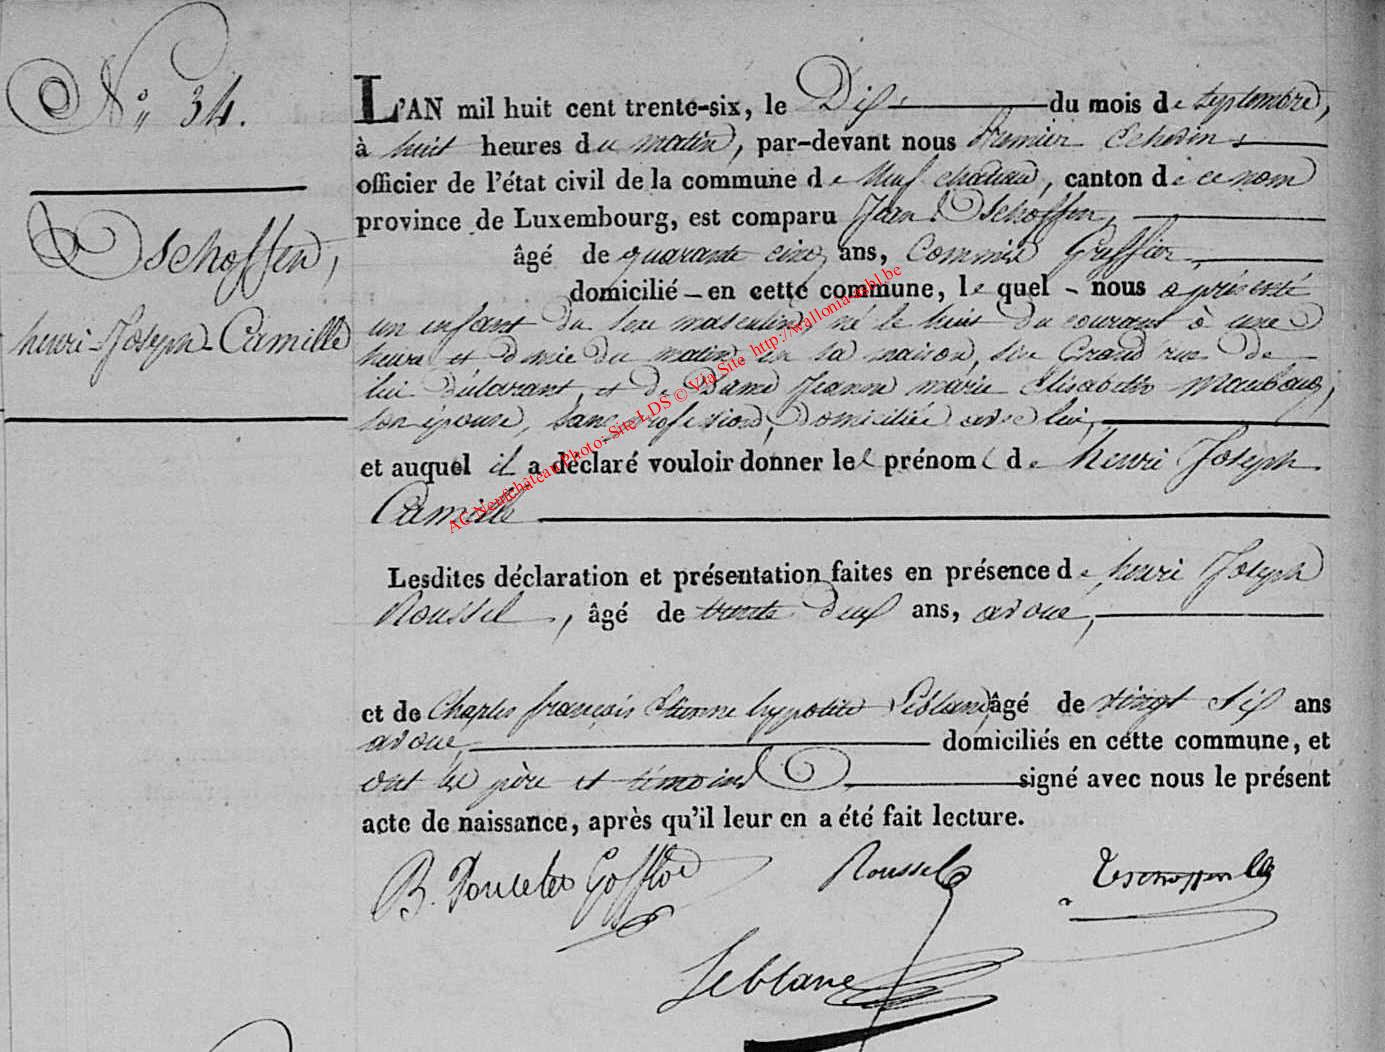 N° 34.
Dschoffen,
henri-Joseph-Camille
L'AN mil huit cent trente-six, le Dix du mois de septembre,
à huit heures du matin, par-devant nous Premier Echevin,
officier de l'état civil de la commune de Neufchateau, canton de ce nom
province de Luxembourg, est comparu Jean Dschoffen,
âgé de quarante cinq ans, Commis Greffier,
domicilié - en cette commune, lequel - nous a présenté
un enfant du sexe masculin, né le huit du courant à une
heure et demie du matin en sa maison, sise Grand rue de
lui déclarant, et de Dame Jeanne marie Elisabeth
son épouse, sans profession, domiciliée avec lui,
et auquel il a déclaré vouloir donner les prénoms de henri Joseph
Camille
Lesdites déclaration et présentation faites en présence de henri Joseph
Roussel, âgé de trente deux ans, avoué,
et de Charles françois Etienne hypolite Leblanc, âgé de vingt six ans
avoué, domiciliés en cette commune, et
ont les père et témoins signé avec nous le présent
acte de naissance, après qu'il leur en a été fait lecture.
B. Poncelet Roussel Tschoffen
Leblanc
AC Neufchâteau Photo: Site LDS © Via Site http://wallonia-asbl.be